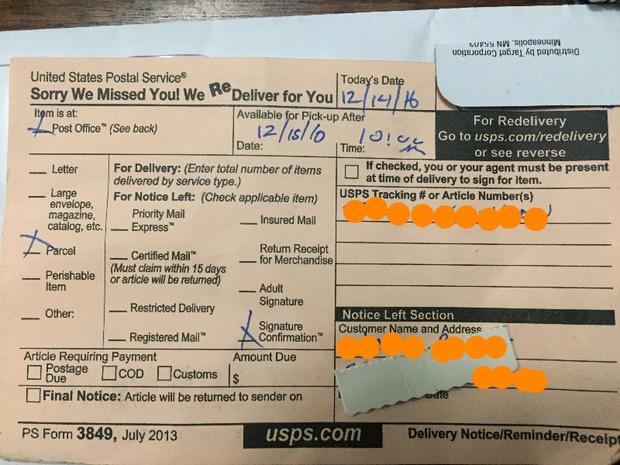 Distributed by Target Corporation
Minneapolis, MN 55403
United States Postal Service®
Sorry We Missed You! We ReDeliver for You
Today's Date
12/14/16
Item is at:
Post Office™ (See back)
Available for Pick-up After
Date:
Time:
For Redelivery
Go to usps.com/redelivery
or see reverse
Letter
Large envelope, magazine, catalog, etc.
X Parcel
Perishable Item
Other:
For Delivery: (Enter total number of items delivered by service type.)
For Notice Left: (Check applicable item)
Priority Mail Express™
Certified Mail™ (Must claim within 15 days or article will be returned)
Restricted Delivery
Registered Mail™
Insured Mail
Return Receipt for Merchandise
Adult Signature
X Signature Confirmation™
If checked, you or your agent must be present at time of delivery to sign for item.
USPS Tracking # or Article Number(s)
Notice Left Section
Customer Name and Address
Date
Article Requiring Payment
Postage Due
COD
Customs
Amount Due
$
Final Notice: Article will be returned to sender on
PS Form 3849, July 2013
usps.com
Delivery Notice/Reminder/Receipt